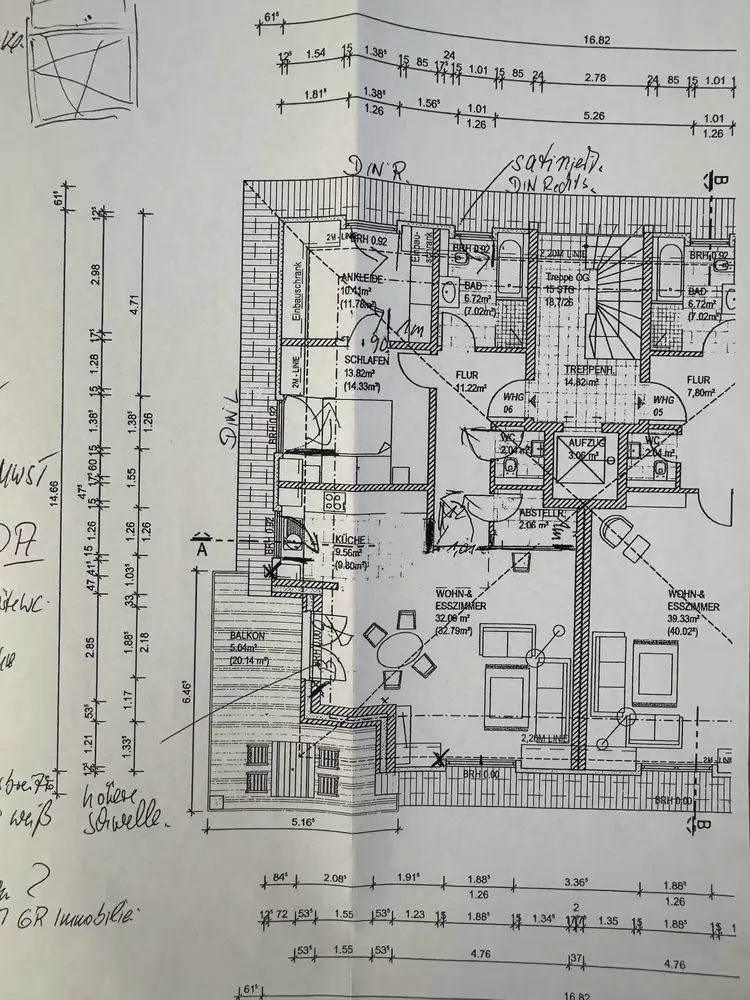 61⁵
16.82
12⁵ 1.54 15 1.38⁵ 15 85 17⁵ 24 15 1.01 15 85 24 2.78 24 85 15 1.01 1
1.81⁵ 1.38⁵ 1.56⁵ 1.01 5.26 1.01
1.26 1.26 1.26
DIN R.
satiniert.
DIN Rechts.
B
61⁵
12⁵
2.98
17⁵
1.28
15
1.38⁵
15
60
17⁵
47⁵
15
1.26
15
41⁵
47
33
2.85
53⁵
1.21
12⁵
14.66
4.71
1.38⁵
1.26
1.55
1.26
1.26
1.03⁵
1.88⁵
2.18
1.17
1.33⁵
2M - LINIE
BRH 0.92
Einbau-
schrank
BRH 0.92
2,20M LINIE
BRH 0.92
Einbauschrank
ANKLEIDE
10.41m²
(11.78m²)
BAD
6.72m²
(7.02m²)
Treppe OG
15 STG
18,7/26
BAD
6.72m²
(7.02m²)
1m
90
2M - LINIE
SCHLAFEN
13.82m²
(14.33m²)
FLUR
11.22m²
TREPPENH.
14.82m²
FLUR
7,80m²
WHG
06
WHG
05
DIN L
BRH 0.92
WC
2.04m²
AUFZUG
3.06m²
WC
2.04m²
A
BRH 0.92
KÜCHE
9.56m²
(9.80m²)
ABSTELLR.
2.06m²
1m
1,01
WOHN-&
ESSZIMMER
32.09m²
(32.79m²)
WOHN-&
ESSZIMMER
39.33m²
(40.02m²)
BALKON
5.04m²
(20.14 m²)
6.46⁵
2,20M LINIE
2M - LINIE
BRH 0.00
BRH 0.00
B
5.16⁵
MWST
höhere
Schwelle.
weiß
GR Immobilie.
84⁵ 2.08⁵ 1.91⁵ 1.88⁵ 3.36⁵ 1.88⁵
1.26 1.26
12⁵ 72 53⁵ 1.55 53⁵ 1.23 15 1.88⁵ 15 1.34⁵ 17⁵ 2 17⁵ 1.35 15 1.88⁵ 15 1
53⁵ 1.55 53⁵ 4.76 37 4.76
61⁵
16.82